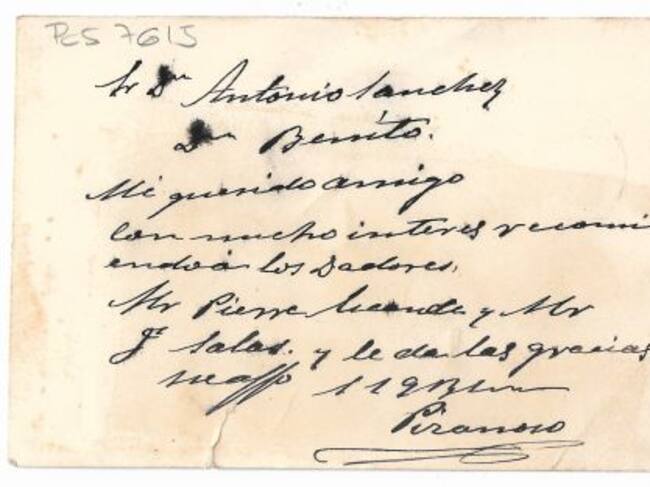 Pcs 7615
Sr Dn Antonio Sanchez
Dn Benito.
Mi querido amigo
Con mucho interes recomi
endo a los Dadores.
Mr Pierre y Mr
Je Salas. y le da las gracias
su affo